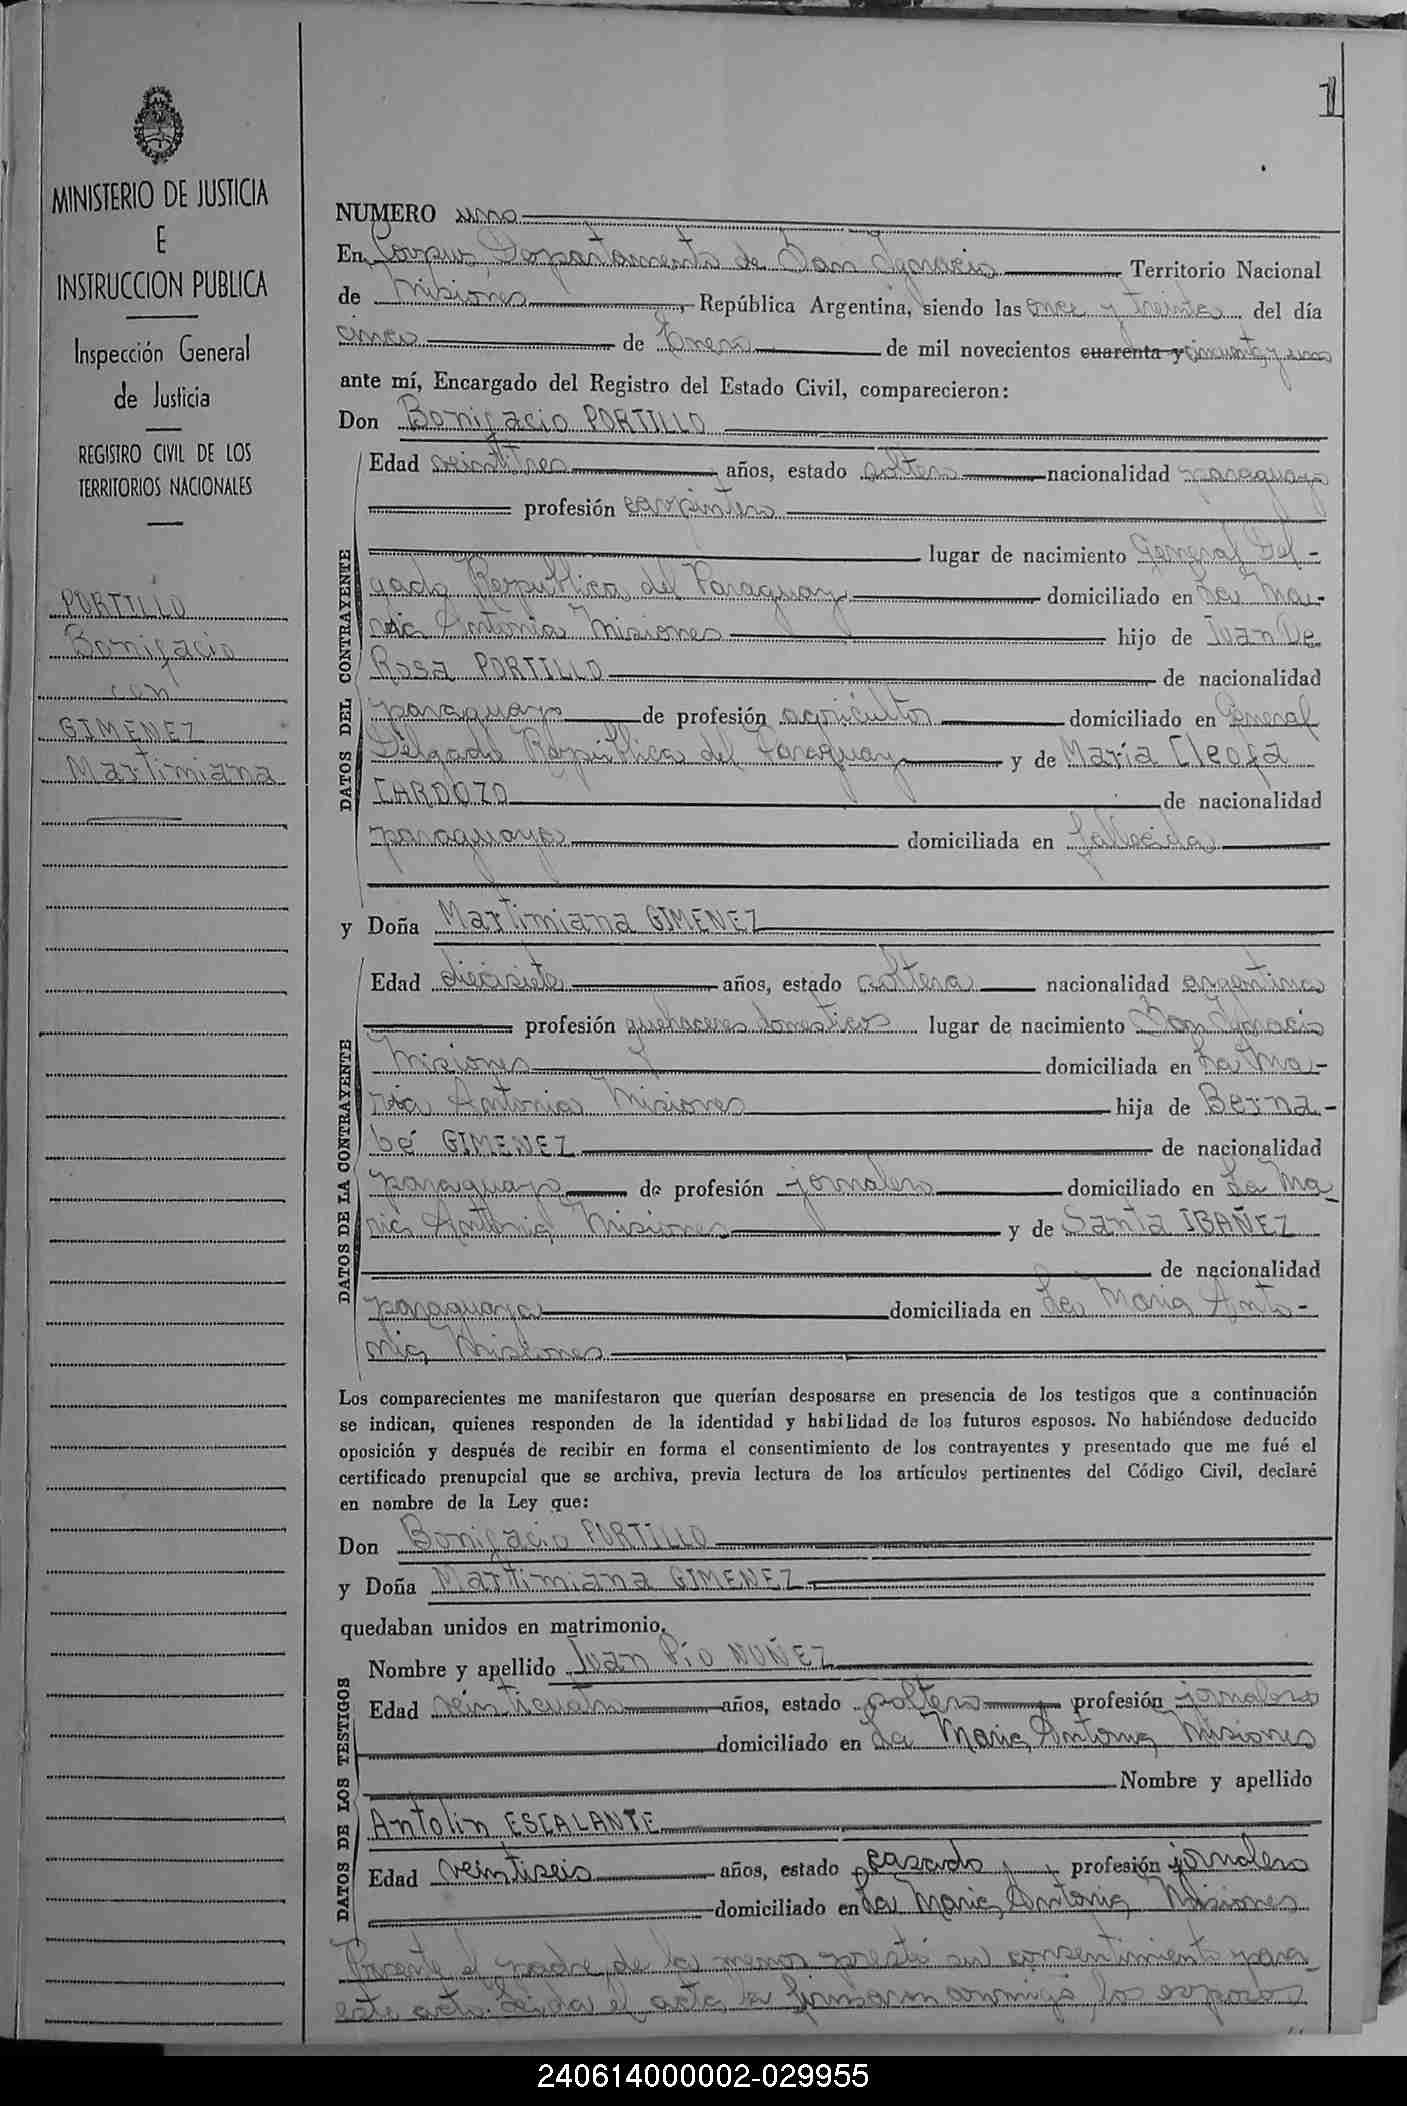 1
MINISTERIO DE JUSTICIA
E
INSTRUCCION PUBLICA
Inspección General
de Justicia
REGISTRO CIVIL DE LOS
TERRITORIOS NACIONALES
PORTILLO
Bonifacio
con
GIMENEZ
Martimiana
NUMERO uno
En Corpus Departamento de San Ignacio Territorio Nacional
de Misiones, República Argentina, siendo las once y treinta del día
cinco de Enero de mil novecientos cuarenta y cincuenta y uno
ante mí, Encargado del Registro del Estado Civil, comparecieron:
Don Bonifacio PORTILLO
DATOS DEL CONTRAYENTE
Edad veintitres años, estado soltero nacionalidad paraguaya
profesión carpintero
lugar de nacimiento General Del-
gado República del Paraguay domiciliado en La Ma-
ria Antonia Misiones hijo de Juan De
Rosa PORTILLO de nacionalidad
paraguayo de profesión agricultor domiciliado en General
Delgado República del Paraguay y de María Cleofa
CARDOZO de nacionalidad
paraguaya domiciliada en fallecida
y Doña Martimiana GIMENEZ
DATOS DE LA CONTRAYENTE
Edad diecisiete años, estado soltera nacionalidad argentina
profesión quehaceres domesticos lugar de nacimiento San Ignacio
Misiones domiciliada en La Ma-
ria Antonia Misiones hija de Berna-
bé GIMENEZ de nacionalidad
paraguayo de profesión jornalero domiciliado en La Ma-
ria Antonia Misiones y de Santa IBAÑEZ
de nacionalidad
paraguaya domiciliada en La Maria Anto-
nia Misiones
Los comparecientes me manifestaron que querían desposarse en presencia de los testigos que a continuación
se indican, quienes responden de la identidad y habilidad de los futuros esposos. No habiéndose deducido
oposición y después de recibir en forma el consentimiento de los contrayentes y presentado que me fué el
certificado prenupcial que se archiva, previa lectura de los artículos pertinentes del Código Civil, declaré
en nombre de la Ley que:
Don Bonifacio PORTILLO
y Doña Martimiana GIMENEZ
quedaban unidos en matrimonio.
DATOS DE LOS TESTIGOS
Nombre y apellido Juan Pío NUÑEZ
Edad veinticuatro años, estado soltero profesión jornalero
domiciliado en La Maria Antonia Misiones
Nombre y apellido
Antolin ESCALANTE
Edad veintiseis años, estado casado profesión jornalero
domiciliado en La Maria Antonia Misiones
Presente el padre de la menor prestó su consentimiento para
este acto. Leída el acta la firmaron conmigo los esposos
240614000002-029955